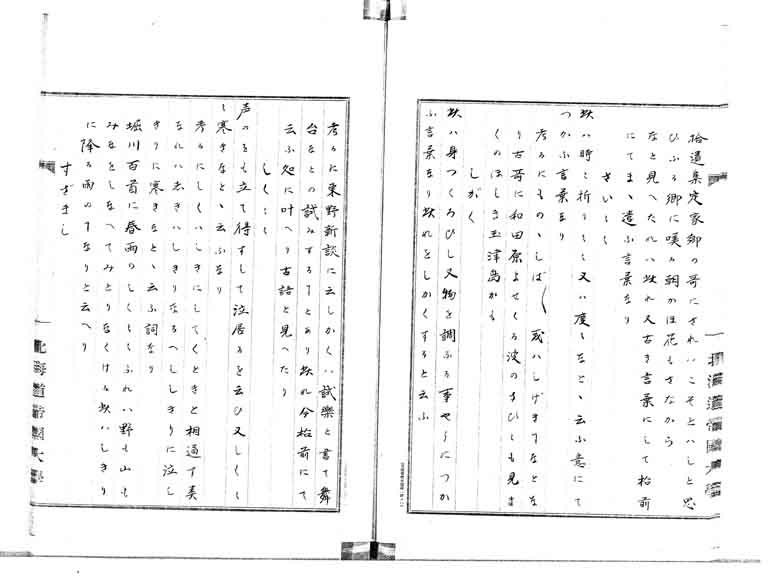 拾遺集定家卿の哥にされはこそとハしと思
ひふる郷に咲る朝かほ花もさなから
なと見へたれハ此れ又古き言葉にして松前
にてまゝ遣ふ言葉なり
さい〱
此ハ時々折々又ハ度々なとゝ云ふ意にて
つかふ言葉なり
考るにものゝしば〱或ハしげきすなとな
り古哥に和田原よせくる波の
も見ま
くのほしき玉津島かも
しがく
此ハ身つくろひし又物を調ふる事やうにつか
ふ言葉なり此れをしかくすると云ふ
考るに東野新談に云しかくハ試樂と書て舞
台なとの試みするすとあり此れ今松前にて
云ふ処に叶へり古語と見へたり
しく〱
声のをも立て得すして泣居るを云ひ又しく〱
寒きなとゝ云ふなり
考るにしくハしきにしてくときと相通す美
なれハ志きハしきりなるへししきりに泣し
きりに寒きなとゝ云ふ詞なり
堀川百首に春雨のしく〱ふれハ野も山も
みなをしなへてみとりなくける此ハしきり
に降る雨のすなりと云へり
すざまし
北海道帝國大學